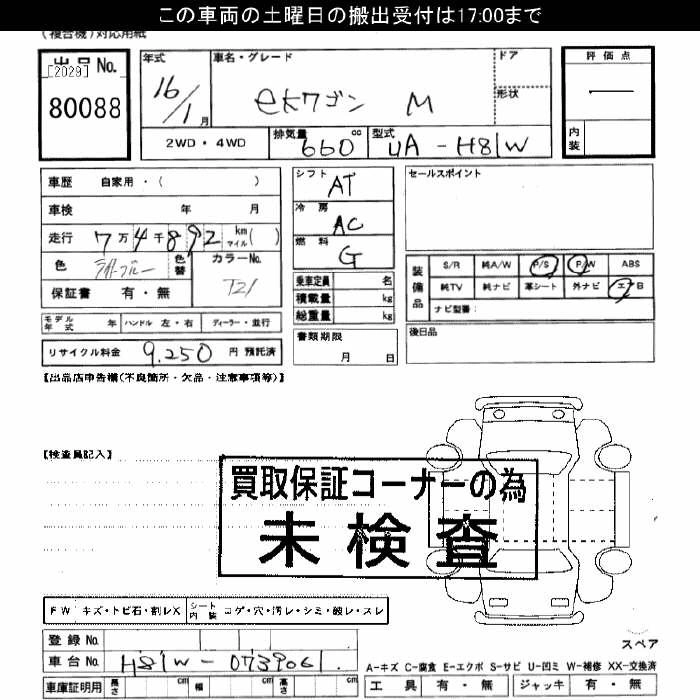 この車両の土曜日の搬出受付は17:00まで
(複合機)対応用紙
出品 No.
[2029]
80088
年式
16/1月
車名・グレード
eKワゴン M
ドア
形状
評価点
内装
2WD・4WD
排気量 660 cc
型式 UA-H81W
車歴 自家用・( )
車検 年 月
走行 7万4千892 km マイル( )
色 ライトブルー
色替
カラーNo.
T21
保証書 有・無
シフト AT
冷房 AC
燃料 G
乗車定員 名
積載量 kg
総重量 kg
セールスポイント
装備品
S/R 純A/W P/S P/W ABS
純TV 純ナビ 革シート 外ナビ エアB
ナビ型番:
モデル年式 年 ハンドル 左・右 ディーラー・並行
書類期限
月 日
後日品
リサイクル料金 9,250 円 預託済
【出品店申告欄(不良箇所・欠品・注意事項等)】
【検査員記入】
買取保証コーナーの為
未検査
FW キズ・トビ石・割レX
シート内装 コゲ・穴・汚レ・シミ・破レ・スレ
登録 No.
車台 No. H81W-0739061
車庫証明用 長さ cm 幅 cm 高さ cm
スペア
A-キズ C-腐食 E-エクボ S-サビ U-凹ミ W-補修 XX-交換済
工具 有・無 ジャッキ 有・無